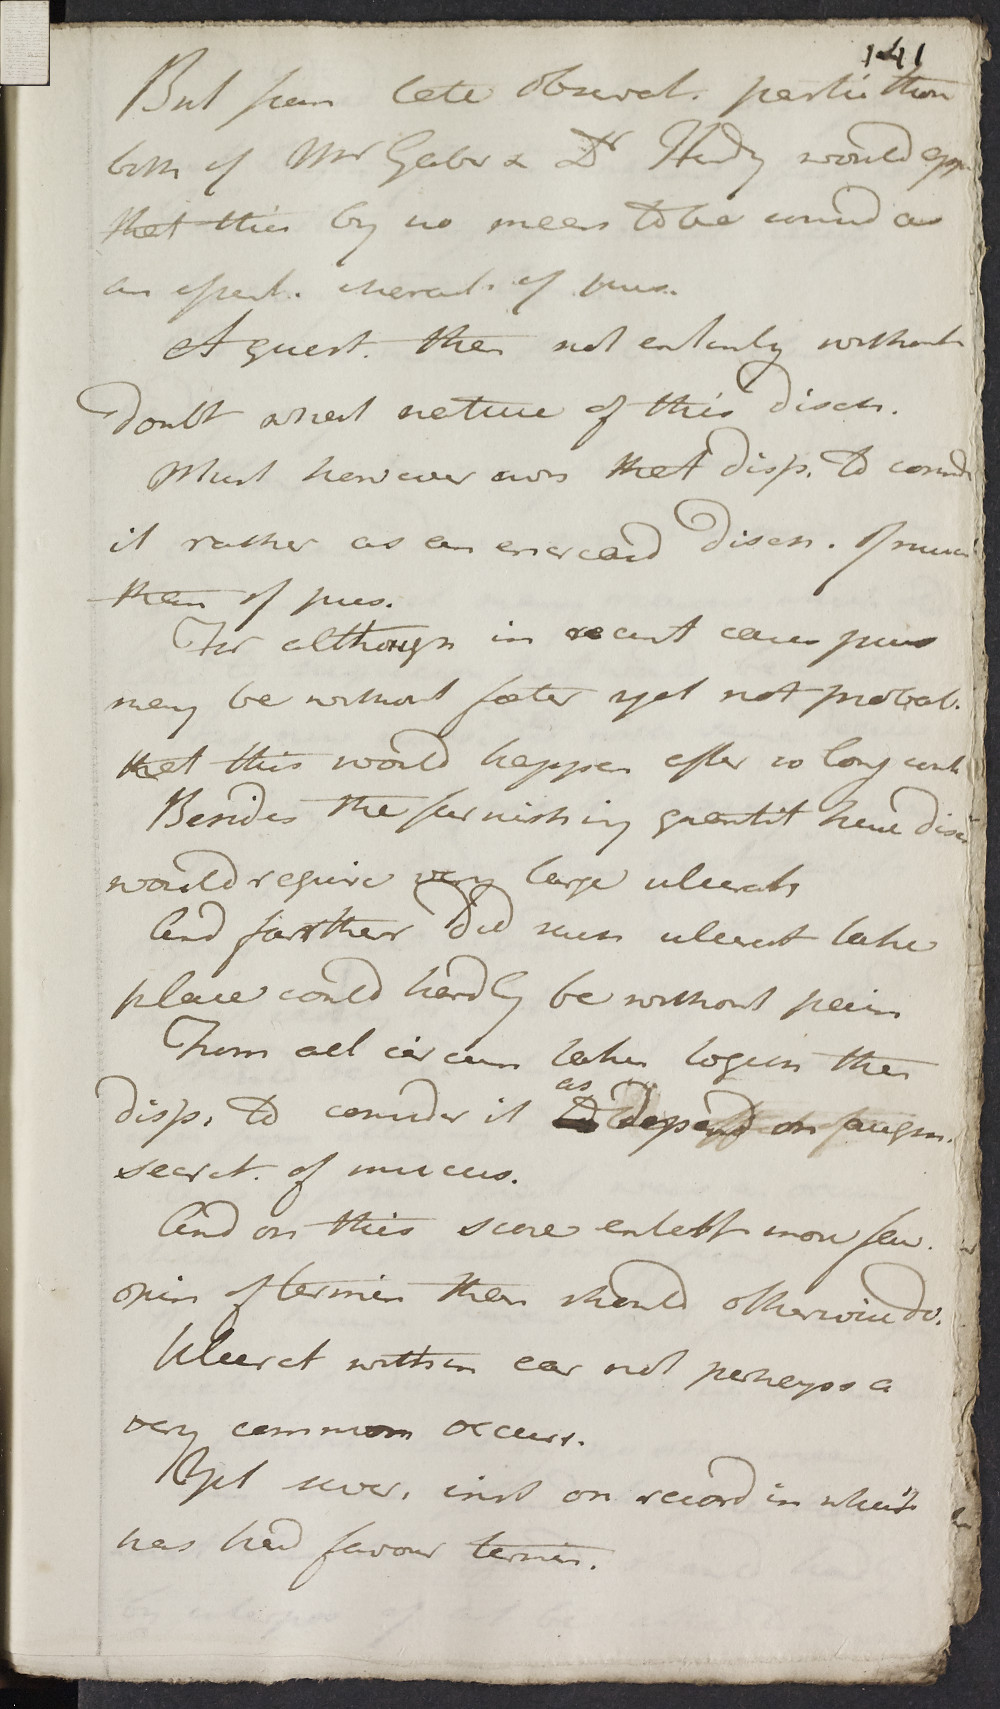 141
But from late observat. particu those
both of Mr Gaber & Dr Hendy would app
that this by no means to be consid as
an effect. ulcerat. of pus.
A quest. then not entirely without
doubt what nature of this disch.
Must however own that disp. to consid
it rather as an increased disch. of mucus
than of pus.
For although in recent cases pus
may be without foeter yet not probab.
that this would happen after so long cont
Besides the furnishing quantit here disch
would require very large ulcerats
And farther did such ulcerat take
place could hardly be without pain
From all circum taken togeth then
disp. to consider it as depend on augm.
secret. of mucus.
And on this score entert more fav.
opin of termin than should otherwise do.
Ulcerat within ear not perhaps a
very common occurr.
Yet sever. inst on record in which
has had favour termin.